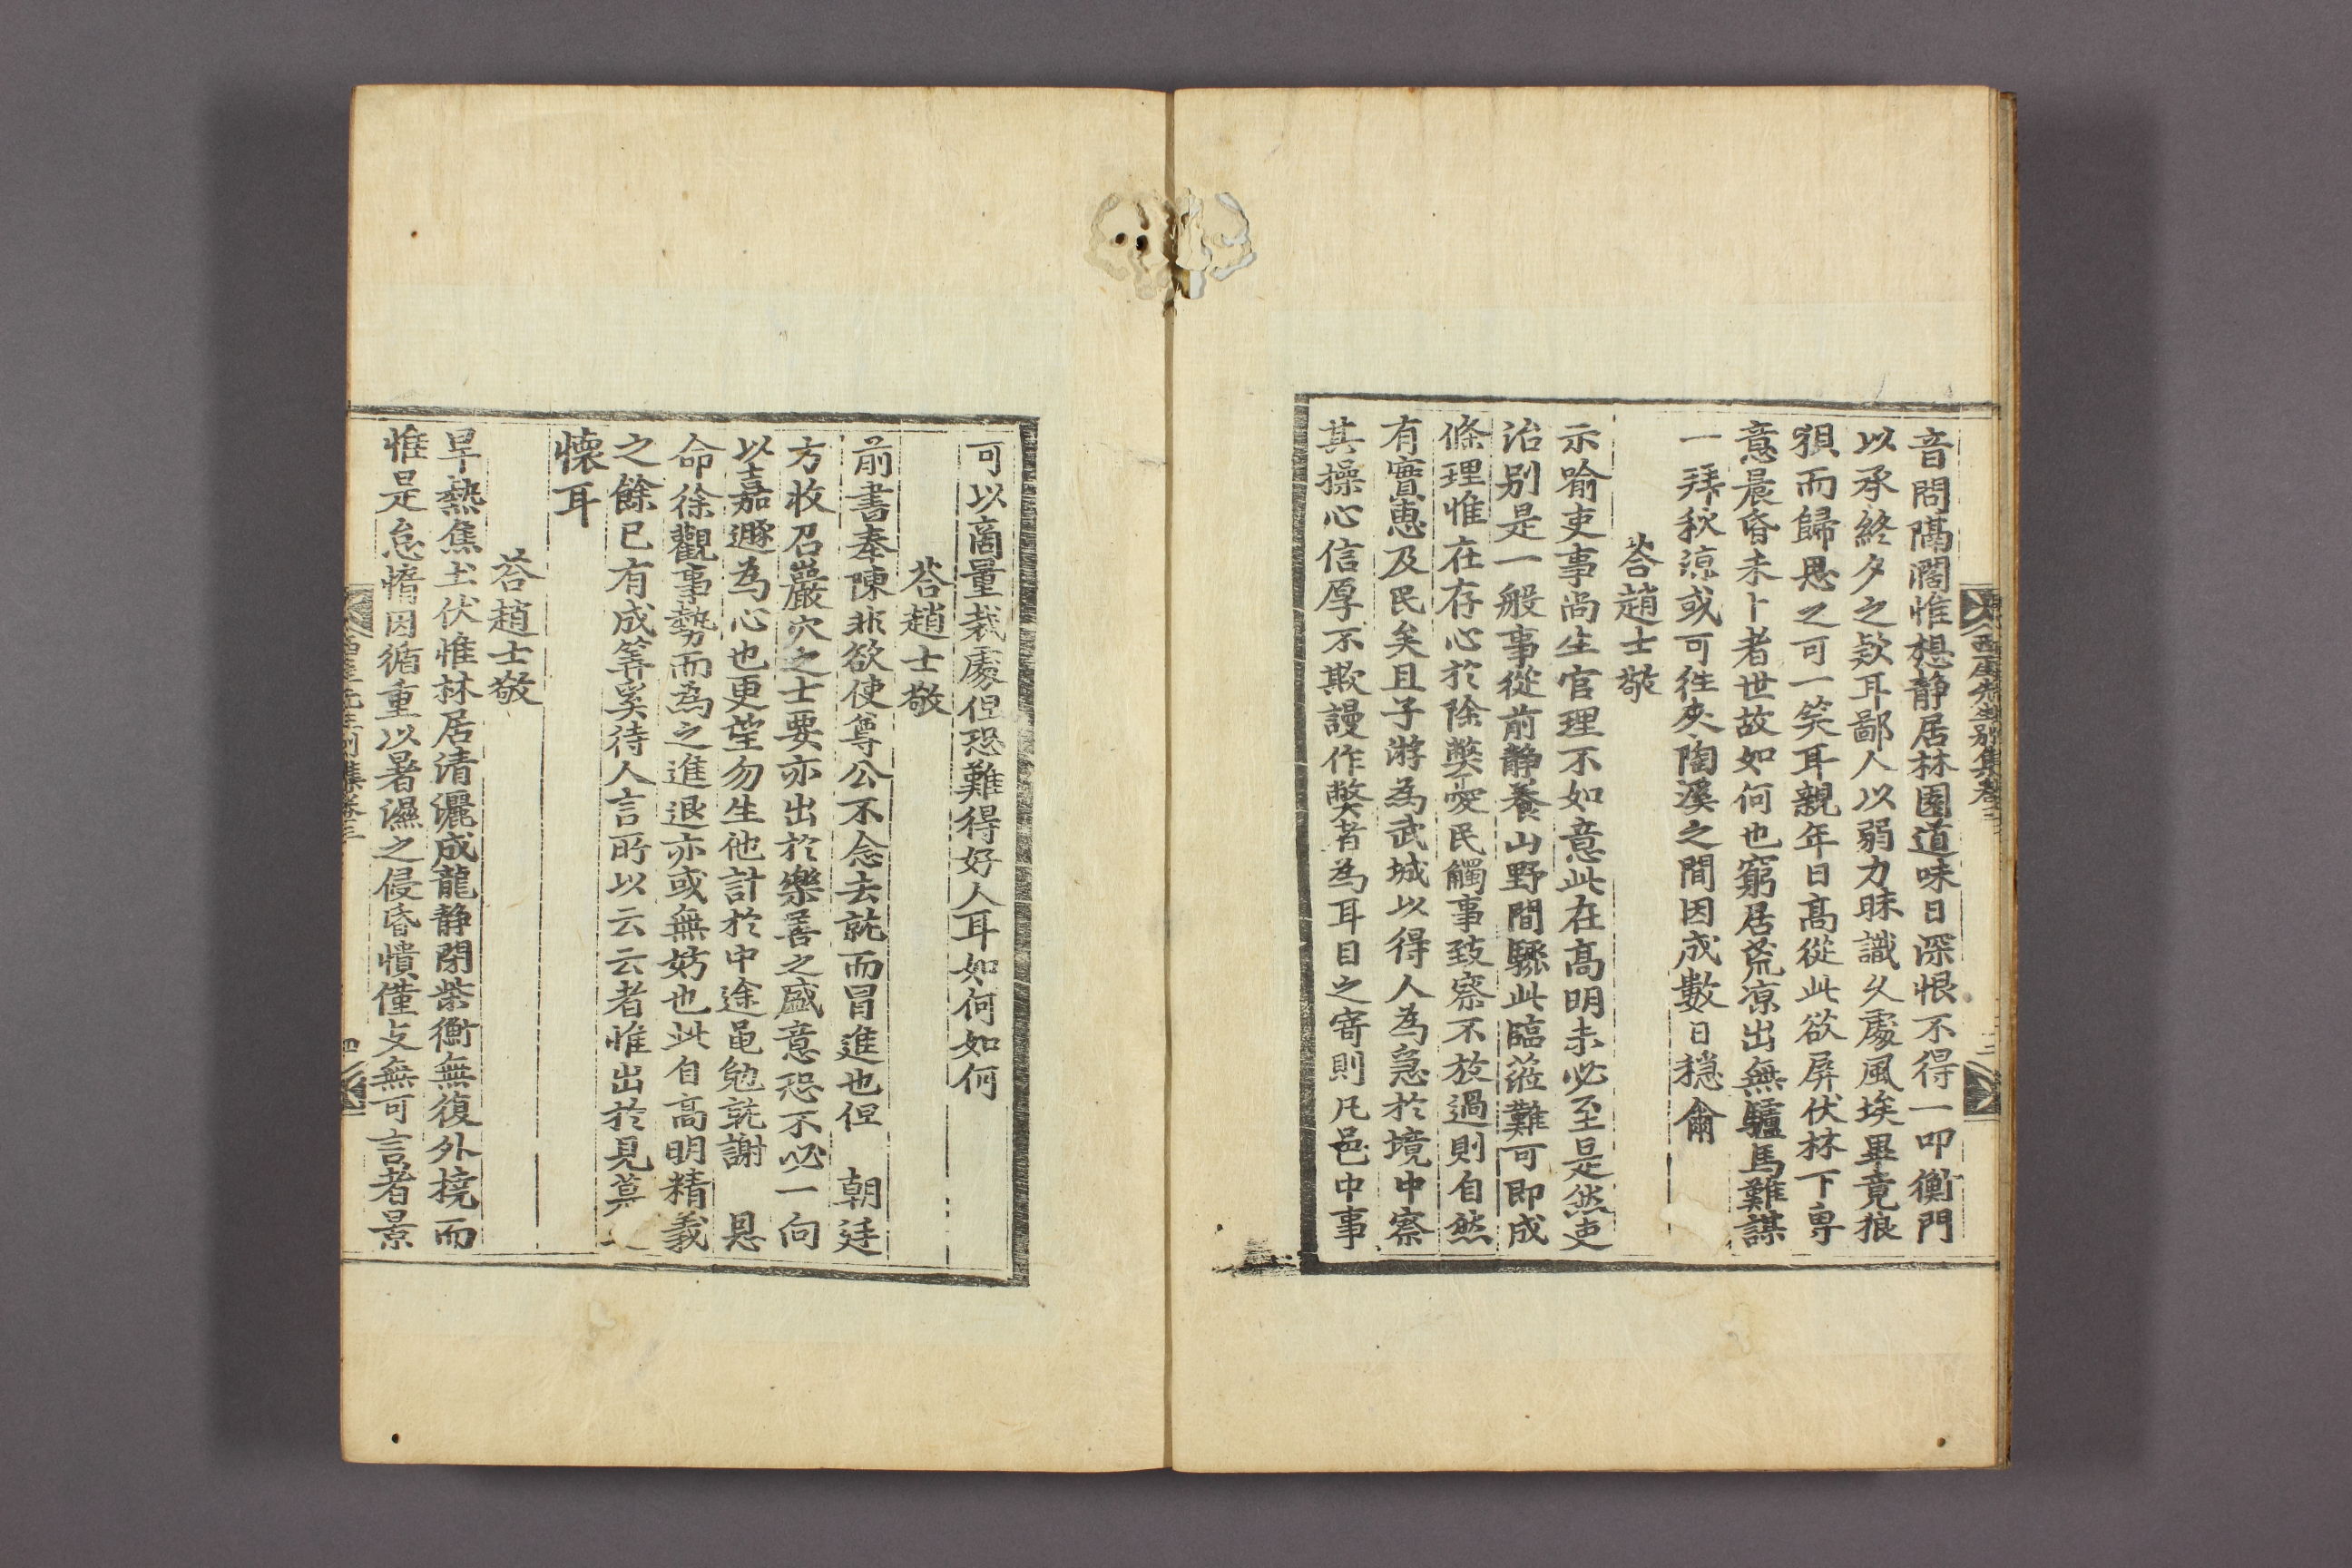 音問隔濶惟想静居林園道味日深恨不得一叩衡門
以承終夕之欵耳鄙人以弱力昧識久處風埃畢竟狼
狽而歸思之可一笑耳親年日高從此欲屏伏林下専
意晨昏未卜者世故如何也窮居荒凉出無驢馬難謀
一拜秋凉或可徃來陶溪之間因成數日穏龠
荅趙士敬
示喻吏事尚生官理不如意此在高明未必至是然吏
治别是一般事從前静養山野間驟此臨莅難可即成
條理惟在存心於除弊愛民觸事致察不放過則自然
有實惠及民矣且子游為武城以得人為急於境中察
其操心信厚不欺謾作弊者為耳目之寄則凡邑中事
西厓先生别集卷三
可以商量裁處但恐難得好人耳如何如何
荅趙士敬
前書奉陳非欲使尊公不念去就而冒進也但 朝廷
方收召巖穴之士要亦出於樂善之盛意恐不必一向
以嘉遯為心也更望勿生他計於中途黽勉就謝 恩
命徐觀事勢而為之進退亦或無妨也此自高明精義
之餘已有成筭奚待人言所以云云者惟出於見莫
懷耳
荅趙士敬
旱熱焦土伏惟林居清灑成龍静閉柴衡無復外撓而
惟是怠惰因循重以暑濕之侵昏憒僅支無可言者景
集卷三
四